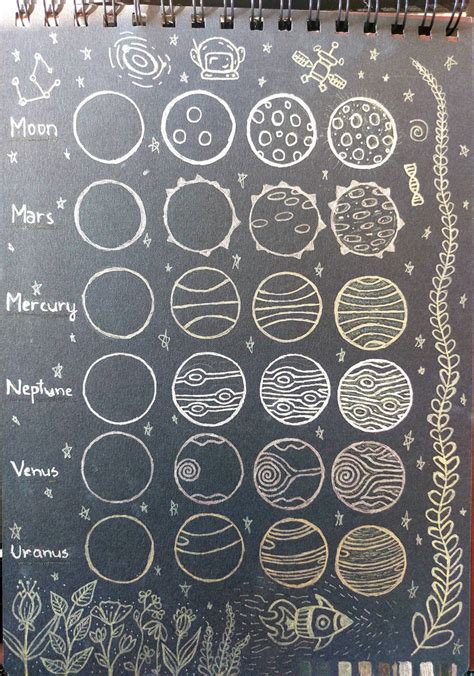 Moon
Mars
Mercury
Neptune
Venus
Uranus